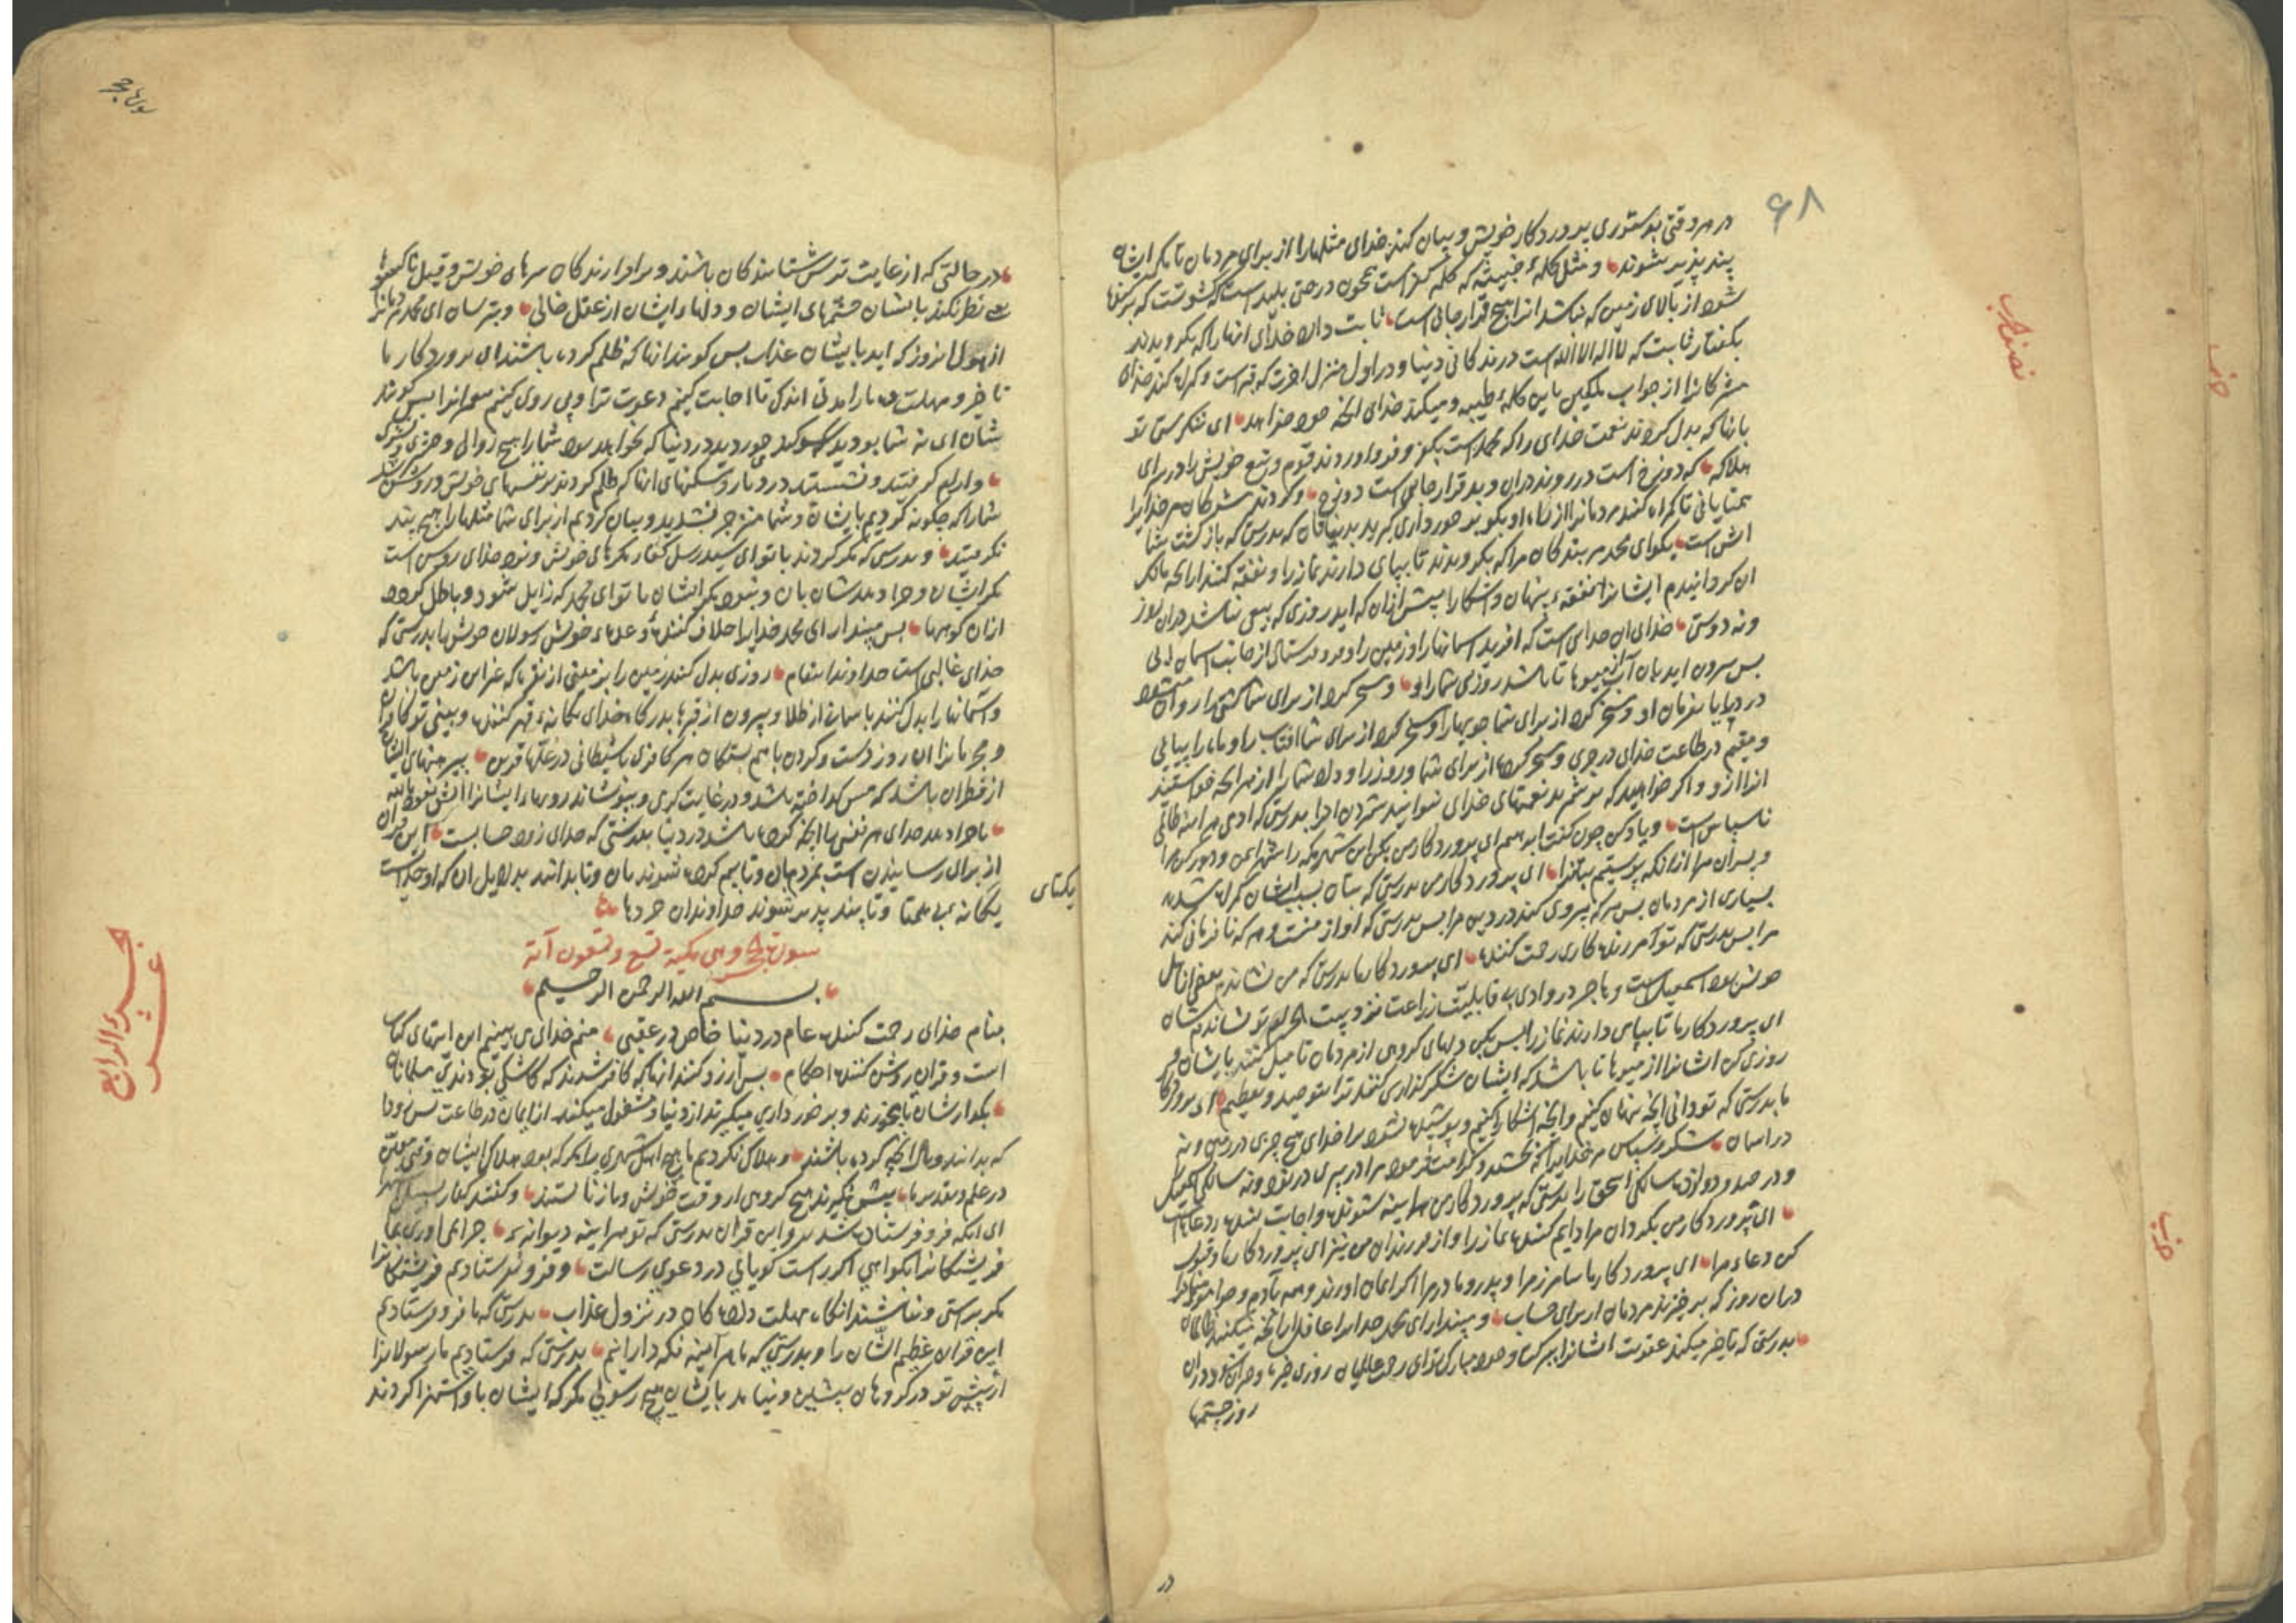 ۶۸
در هر وقتی بدستوری پروردکار خویش و بیان کند خدای مثلها را از برای مردمان تا مکر ایشان
پند پذیر شوند و مثل کلمهٔ خبیثه که کلمه کفرست همچون درختی پلید است که
شود از بالای زمین که نباشد انرا هیچ قرار جائی است ثابت دارد خدای انها را که بکرویدند
بکفتار ثابت که لا اله الا الله است در زندکانی دنیا و در اول منزل اخرت که قبر است و کمراه کند خدای
مشرکانرا از جواب باین کلمهٔ طیبه و میکند خدای انچه خود خواهد ای ننکرستی تو
بانها که بدل کردند نعمت خدای را که محمد است بکفر و فرود اوردند قوم و تبع خویش را در سرای
هلاکه که دوزخ است در روند دران و بد قرار جائی است دوزخ و کردند مشرکان مر خدایرا
همتایانی تا کمراه کنند مردمانرا از راه او بکو برخورداری کیرید که بدرستی که بازکشت شما
اتش است بکو ای محمد مر بندکان مرا که بکرویدند تا بپای دارند نماز را و نفقه کنند از انچه مالک
ان کردانیدم ایشانرا نفقهٔ پنهان و اشکارا پیش ازان که اید روزی که بیعی نباشد دران روز
و نه دوستی خدای ان خدای است که افرید اسمانها را و زمین را و فرو فرستاد از جانب اسمان ابی
بس بیرون اورد بان آب از میوها تا باشد روزی شما را و مسخر کرد از برای شما کشتی را روان شود
در دریا بفرمان او و مسخر کرد از برای شما جویها را و مسخر کرد از برای شما افتاب را و ماه را پیاپی
و مقیم در طاعت خدای در جری و مسخر کرد از برای شما و روز را و داد شما را از هر انچه خواستید
انرا ازو و اکر خواهید که بشمرید نعمتهای خدای نتوانید شمردن انرا بدرستی که ادمی هر اینه ظالمی
ناسپاس است و یاد کن چون کفت ابرهیم ای پروردکار من بکن این شهر مکه را شهر ایمن و دور کن مرا
و پسران مرا ازانکه پرستیم بتانرا ای پروردکار من بدرستی که بتان بسبب ایشان کمراه شدند
بسیاری از مردمان بس هر که پیروی کند در دین مرا بس بدرستی که او از منست و هر که نافرمانی کند
مرا بس بدرستی که تو آمرزنده کاری رحمت کننده ای پروردکار ما بدرستی که من نشاندم بعضی از اهل
خویش را اسمعیل است و هاجر در وادی بی قابلیت زراعت نزدیک تو نشاندم شان
ای پروردکار ما تا بپای دارند نماز را بس بکن دلهای کروهی از مردمان تا میل کنند بایشان و
روزی کن ایشانرا از میوها تا باشد که ایشان شکر کذاری کنند ترا بتوحید و تعظیم ای پروردکار
ما بدرستی که تو دانی انچه پنهان کنیم و انچه اشکارا کنیم و پوشیده نشود بر خدای هیچ چیزی در زمین و نه
در اسمان شکر و سپاس مر خدایرا که بخشید و کرامت فرمود مرا در پیری در نود و نه سالکی اسمعیل
و در صد و دوازده سالکی اسحق را بدرستی که پروردکار من هر اینه شنونده و اجابت کننده دعاست
ای پروردکار من بکردان مرا دایم کننده نماز را و از فرزندان من نیز ای پروردکار ما و قبول
کن دعاء مرا ای پروردکار ما بیامرز مرا و پدر و مادر مرا اکر ایمان اورند و همه آدم و حوا
دران روز که برخیزند مردمان از برای حساب و مپندار ای محمد خدایرا غافل از انچه میکنند ظالمان
بدرستی که تاخیر میکند عقوبت ایشانرا ای رحمت عالمیان روزی خیره و حیران شود دران
روز چشمها
در
نصف حزب
حزب
حزب
سورة حجر
در حالتی که از غایت ترس شتابندکان باشند و بر ادارندکان سرهای خویش و قبل تا کسی
نظر نکند بایشان چشمهای ایشان و دلهاء ایشان از عقل خالی و بترسان ای محمد مردمانرا
از هول انروز که اید بایشان عذاب بس کویند انها که ظلم کرده باشند ای پروردکار ما
تاخیر و مهلت ده ما را مدتی اندک تا اجابت کنیم دعوت ترا و پی روی کنیم پیغمبرانرا بس کویند
شان ای نه شما بودید سوکند خوردید در دنیا که نخواهد بود شما را هیچ زوالی و حشری
و ارام کرفتید و نشستید در دیار و مسکنهای انها که ظلم کردند بر نفسهای خویش و روشن شد
شما را که چکونه کردیم بایشان و شما منزجر نشدید و بیان کردیم از برای شما مثلها را هیچ پند
نکرفتید و بدرستی که مکر کردند با تو ای سید رسل کفار مکرهای خویش و نزد خدای روشن است
مکر ایشان و جزا دهد شان بان و نبود مکر ایشان با تو ای محمد که زایل شود و باطل کردد
ازان کوهها بس مپندار ای محمد خدایرا خلاف کننده وعدهاء خویش رسولان خویش را بدرستی که
خدای غالبی است خداوند انتقام روزی بدل کنند زمین را بزمینی از نقره که غیر این زمین باشد
و اسمانها را بدل کنند باسمان از طلا و بیرون از قبرها بدرکاه خدای یکانه قهر کننده و ببینی تو کافران
و مجرمانرا ان روز دست و کردن باهم بستکان هر کافری با شیطانی در غلها قرین پیرهنهای ایشان
از قطران باشد که مس کداخته باشد و در غایت کرمی و بپوشاند رویهاء ایشانرا اتش نعوذ بالله
تا جزا دهد خدای هر نفسی را انچه کرده باشد در دنیا بدرستی که خدای زود حسابست این قرآن
از برای رسانیدن است بمردمان و تا بیم کرده شوند بان و تا بدانند بدلایل ان که او خدایست
یکانه بی همتا و تا پند پذیر شوند خداوندان خردها
یکتای
سورة الحجر و هی مکیة تسع و تسعون آیة
بسم الله الرحمن الرحیم
بنام خدای رحمت کننده عام در دنیا خاص در عقبی منم خدای می بینم این ایتهای کتاب
است و قران روشن کننده احکام بس ارزو کنند انها که کافر شدند که کاشکی بودندی مسلمانان
بکذار شان تا بخورند و برخورداری میکیرند از دنیا و مشغول میکند از ایمان در طاعت بس زود
که بدانند وبال انچه کرده باشند و هلاک نکردیم ما هیچ اهل شهری را مکر که بود هلاک ایشان وقتی معین
در علم و تقدیر ما پیش نکیرند هیچ کروهی از وقت خویش و باز نایستند و کفتند کفار
ای انکه فرو فرستاده شد برو این قران بدرستی که تو هر اینه دیوانهٔ چرا نمی اوری بما
فریشتکانرا بکواهی اکر راست کویانی در دعوی رسالت و فرو نفرستادیم فریشتکانرا
مکر براستی و نباشند انکاه مهلت داده کان در نزول عذاب بدرستی که ما فرو فرستادیم
این قران عظیم الشان را و بدرستی که ما هر آینه نکه دارانیم بدرستی که فرستادیم ما رسولانرا
از پیش تو در کروهان پیشین و نیامد بایشان هیچ رسولی مکر که ایشان باو استهزا کردند
الجزء الرابع
عشر